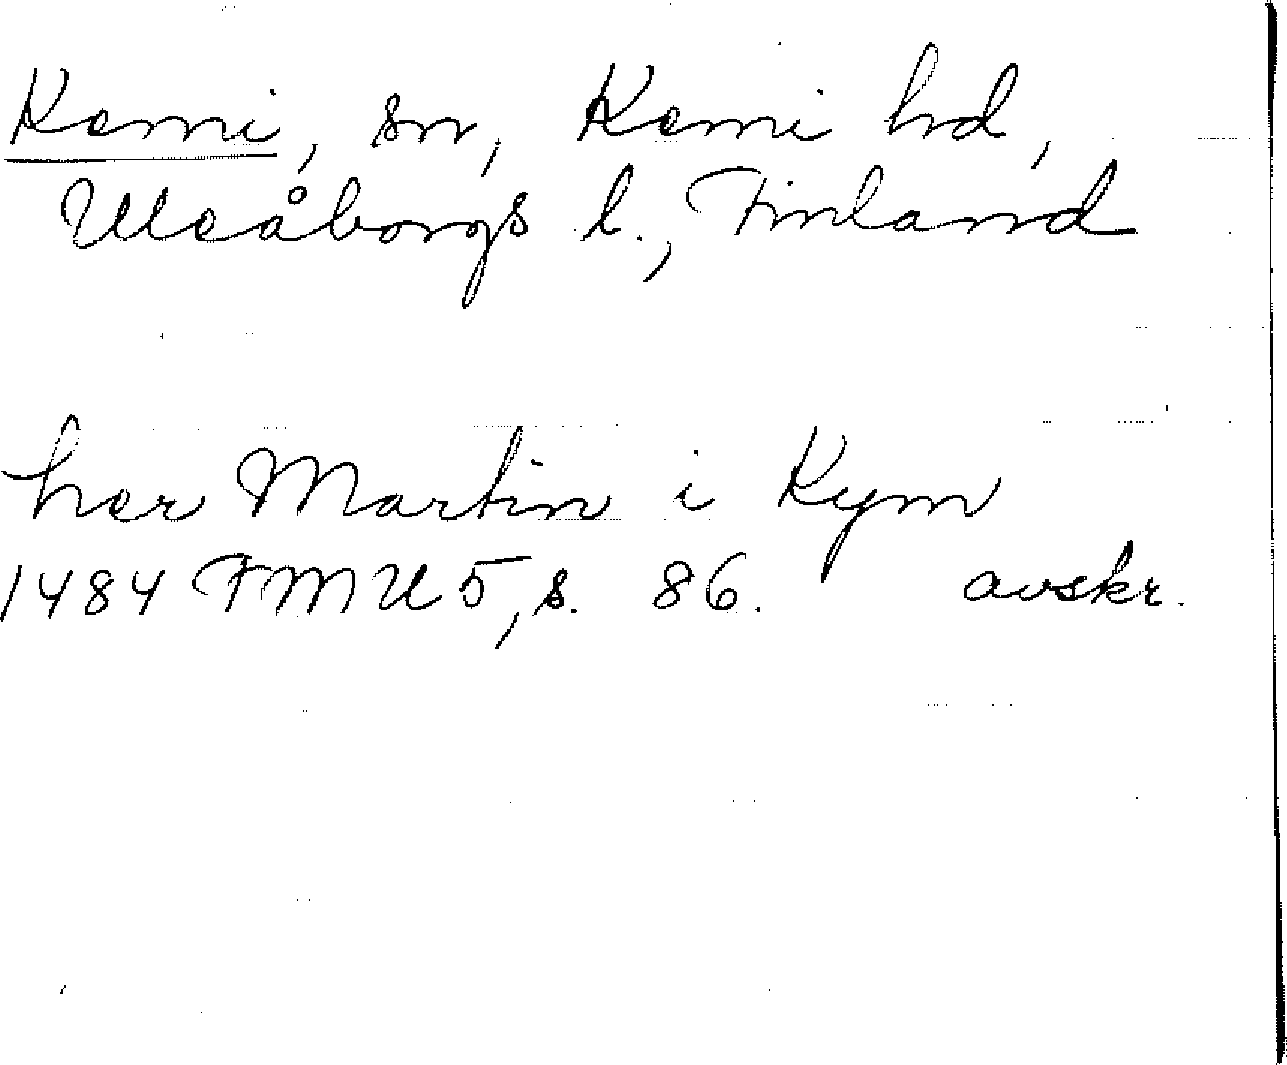 Kemi, sn, Kemi hd,
Uleåborgs l., Finland
her Martin i Kym
1484 FMU 5, s. 86. avskr.